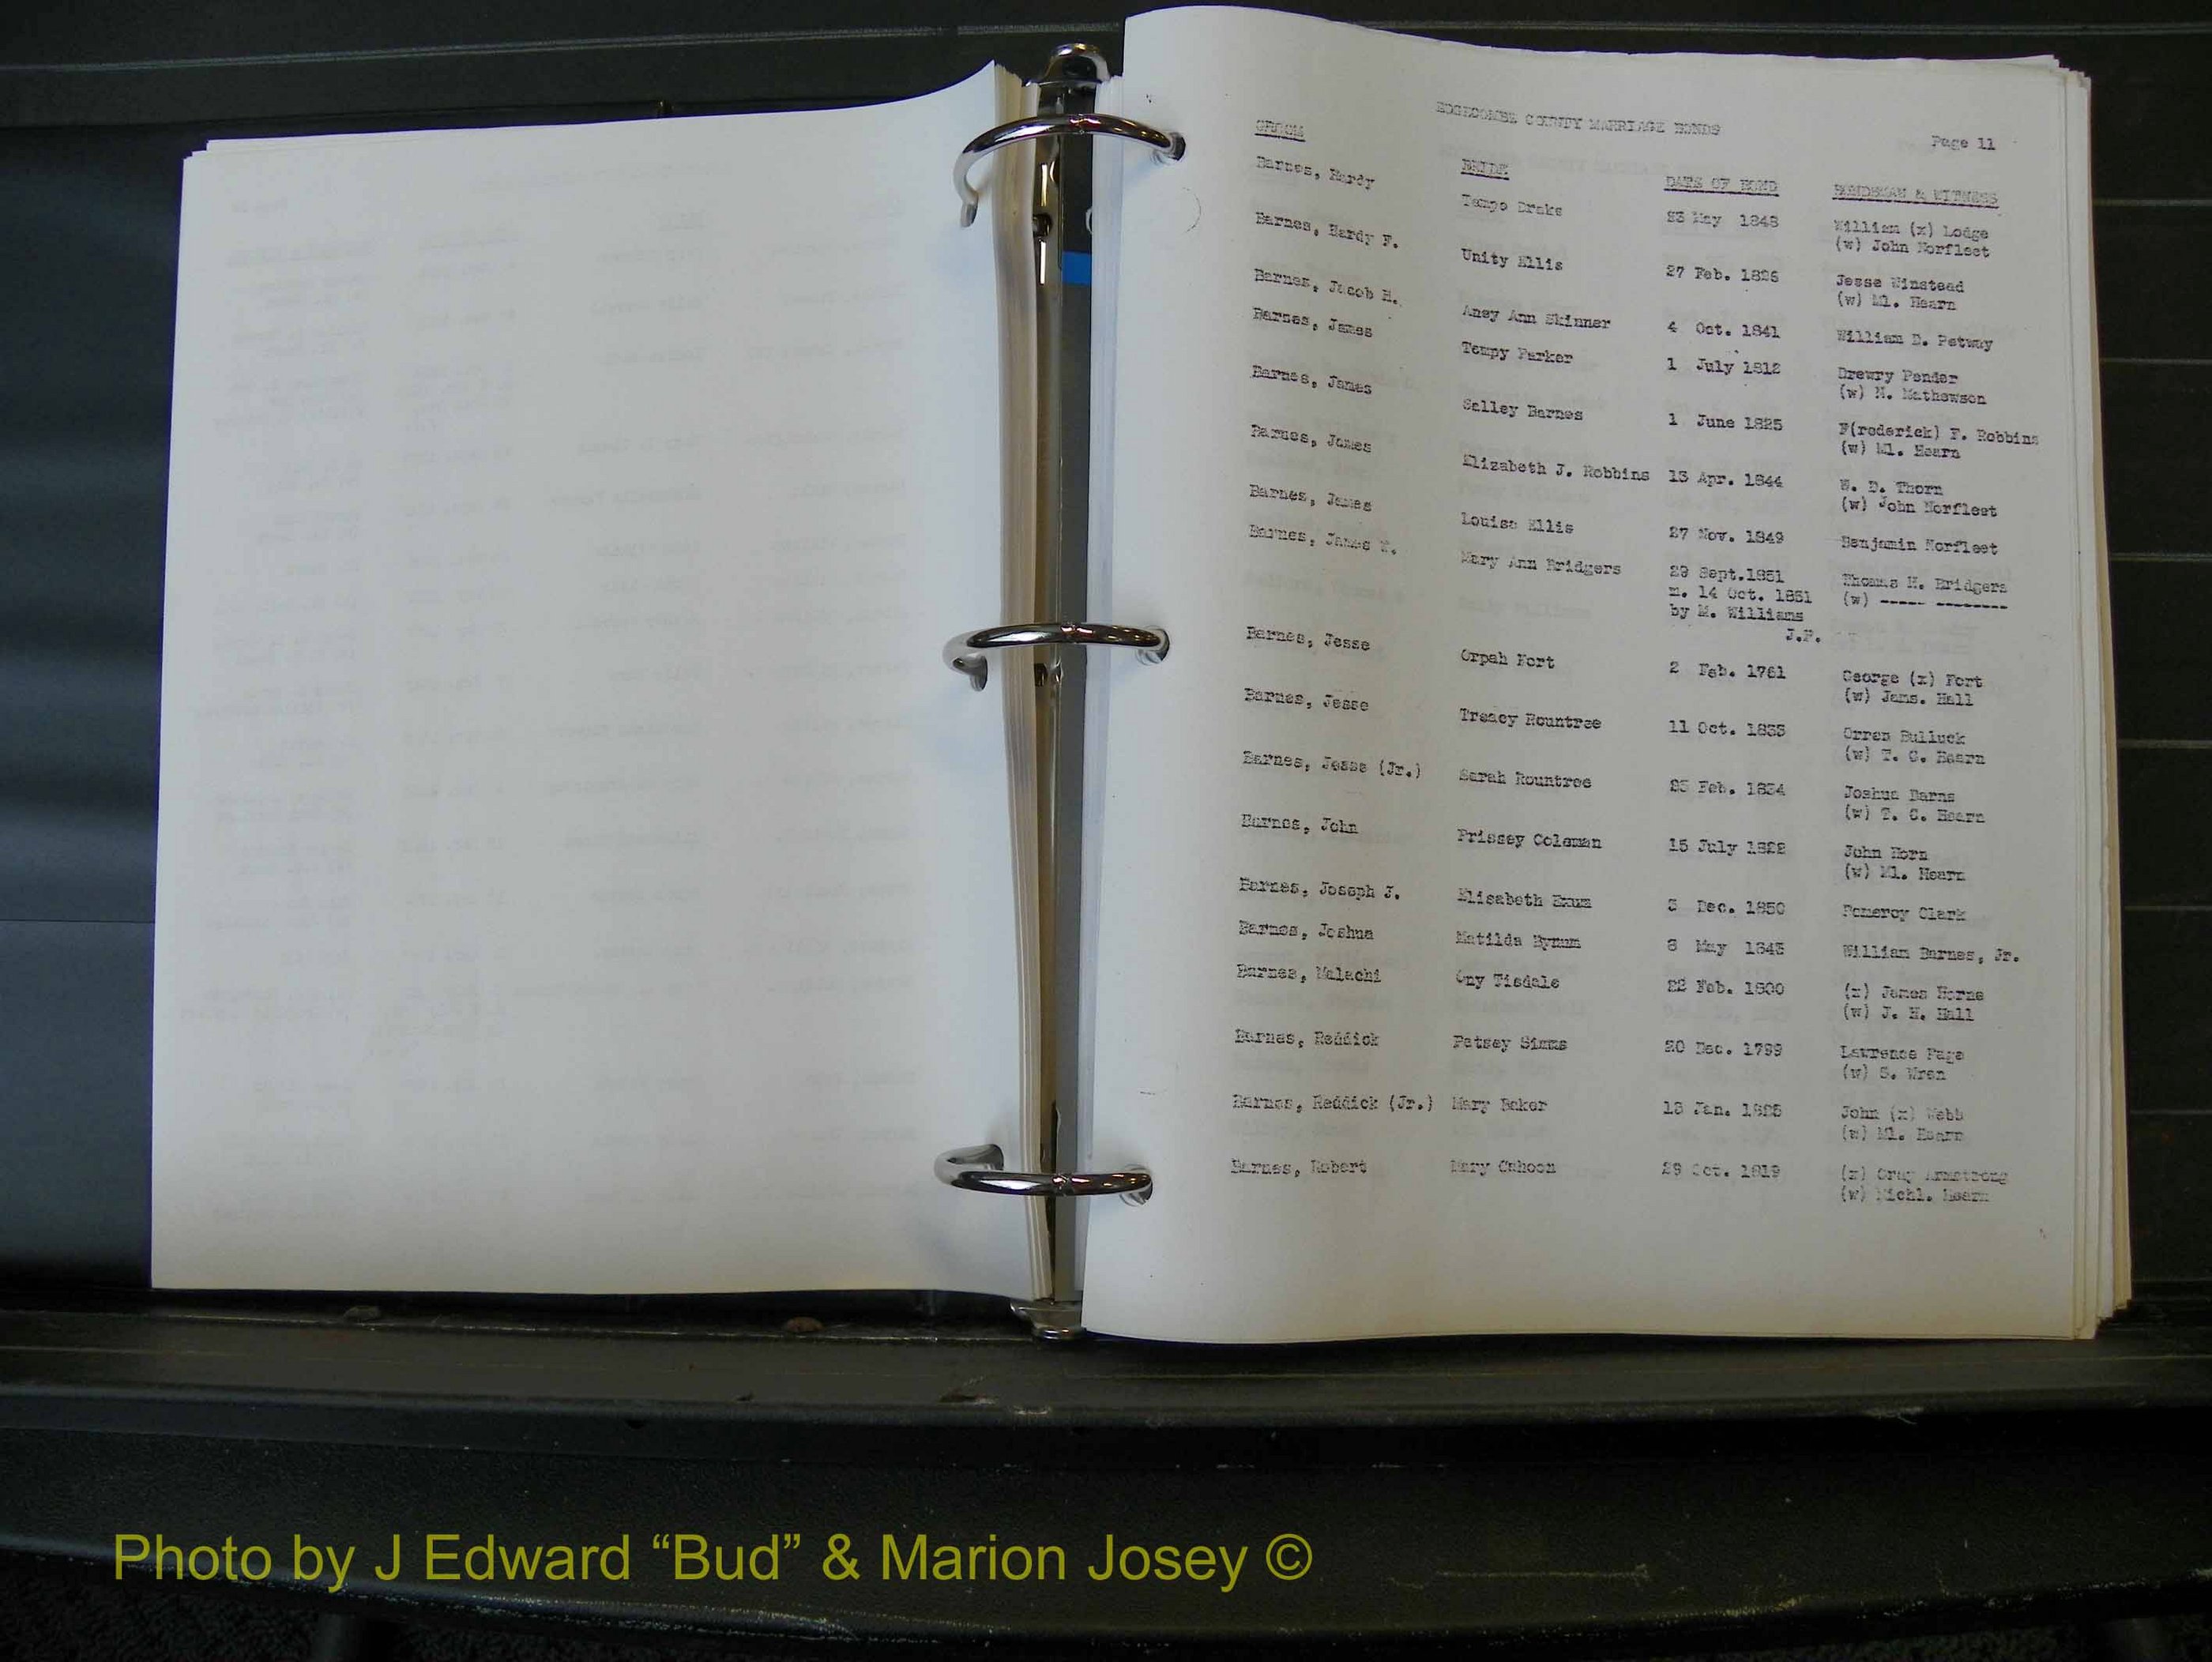 EDGECOMBE COUNTY MARRIAGE BONDS
Page 11
GROOM BRIDE DATE OF BOND BONDSMAN & WITNESS
Barnes, Hardy Tempo Drake 23 May 1848 William (x) Lodge
(w) John Norfleet
Barnes, Hardy F. Unity Ellis 27 Feb. Jesse Winstead
(w) Ml. Hearn
Barnes, Jacob H. Aney Ann Skinner 4 Oct. 1841 William D. Petway
Barnes, James Tempy Parker 1 July 1812 Drewry Pender
(w) N. Mathewson
Barnes, James Salley Barnes 1 June 1825 F(rederick) F. Robbins
(w) Ml. Hearn
Barnes, James Elizabeth J. Robbins 13 Apr. 1844 W. D. Thorn
(w) John Norfleet
Barnes, James Louisa Ellis 27 Nov. 1849 Benjamin Norfleet
Barnes, James Mary Ann Bridgers 29 Sept.1851 Thomas H. Bridgers
m. 14 Oct. 1851 (w) ----- --------
by M. Williams
J.P.
Barnes, Jesse Orpah Fort 2 Feb. 1761 George (x) Fort
(w) Jams. Hall
Barnes, Jesse Treacy Rountree 11 Oct. 1833 Orren Bulluck
(w) T. C. Hearn
Barnes, Jesse (Jr.) Sarah Rountree 25 Feb. 1834 Joshua Barns
(w) T. C. Hearn
Barnes, John Prissey Coleman 15 July 1822 John Horn
(w) Ml. Hearn
Barnes, Joseph J. Elisabeth Exum 3 Dec. 1850 Pomeroy Clark
Barnes, Joshua Matilda Bynum 8 May 1843 William Barnes, Jr.
Barnes, Malachi Ony Tisdale 22 Feb. 1800 (x) James Horne
(w) J. H. Hall
Barnes, Reddick Patsey Simms 20 Dec. 1799 Lawrence Page
(w) S. Wren
Barnes, Reddick (Jr.) Mary Baker Jan. John (x) Webb
(w) Ml. Hearn
Barnes, Robert Mary Cahoon 29 Oct. 1819 (x) Gray Armstrong
(w) Michl. Hearn
Photo by J Edward “Bud” & Marion Josey ©